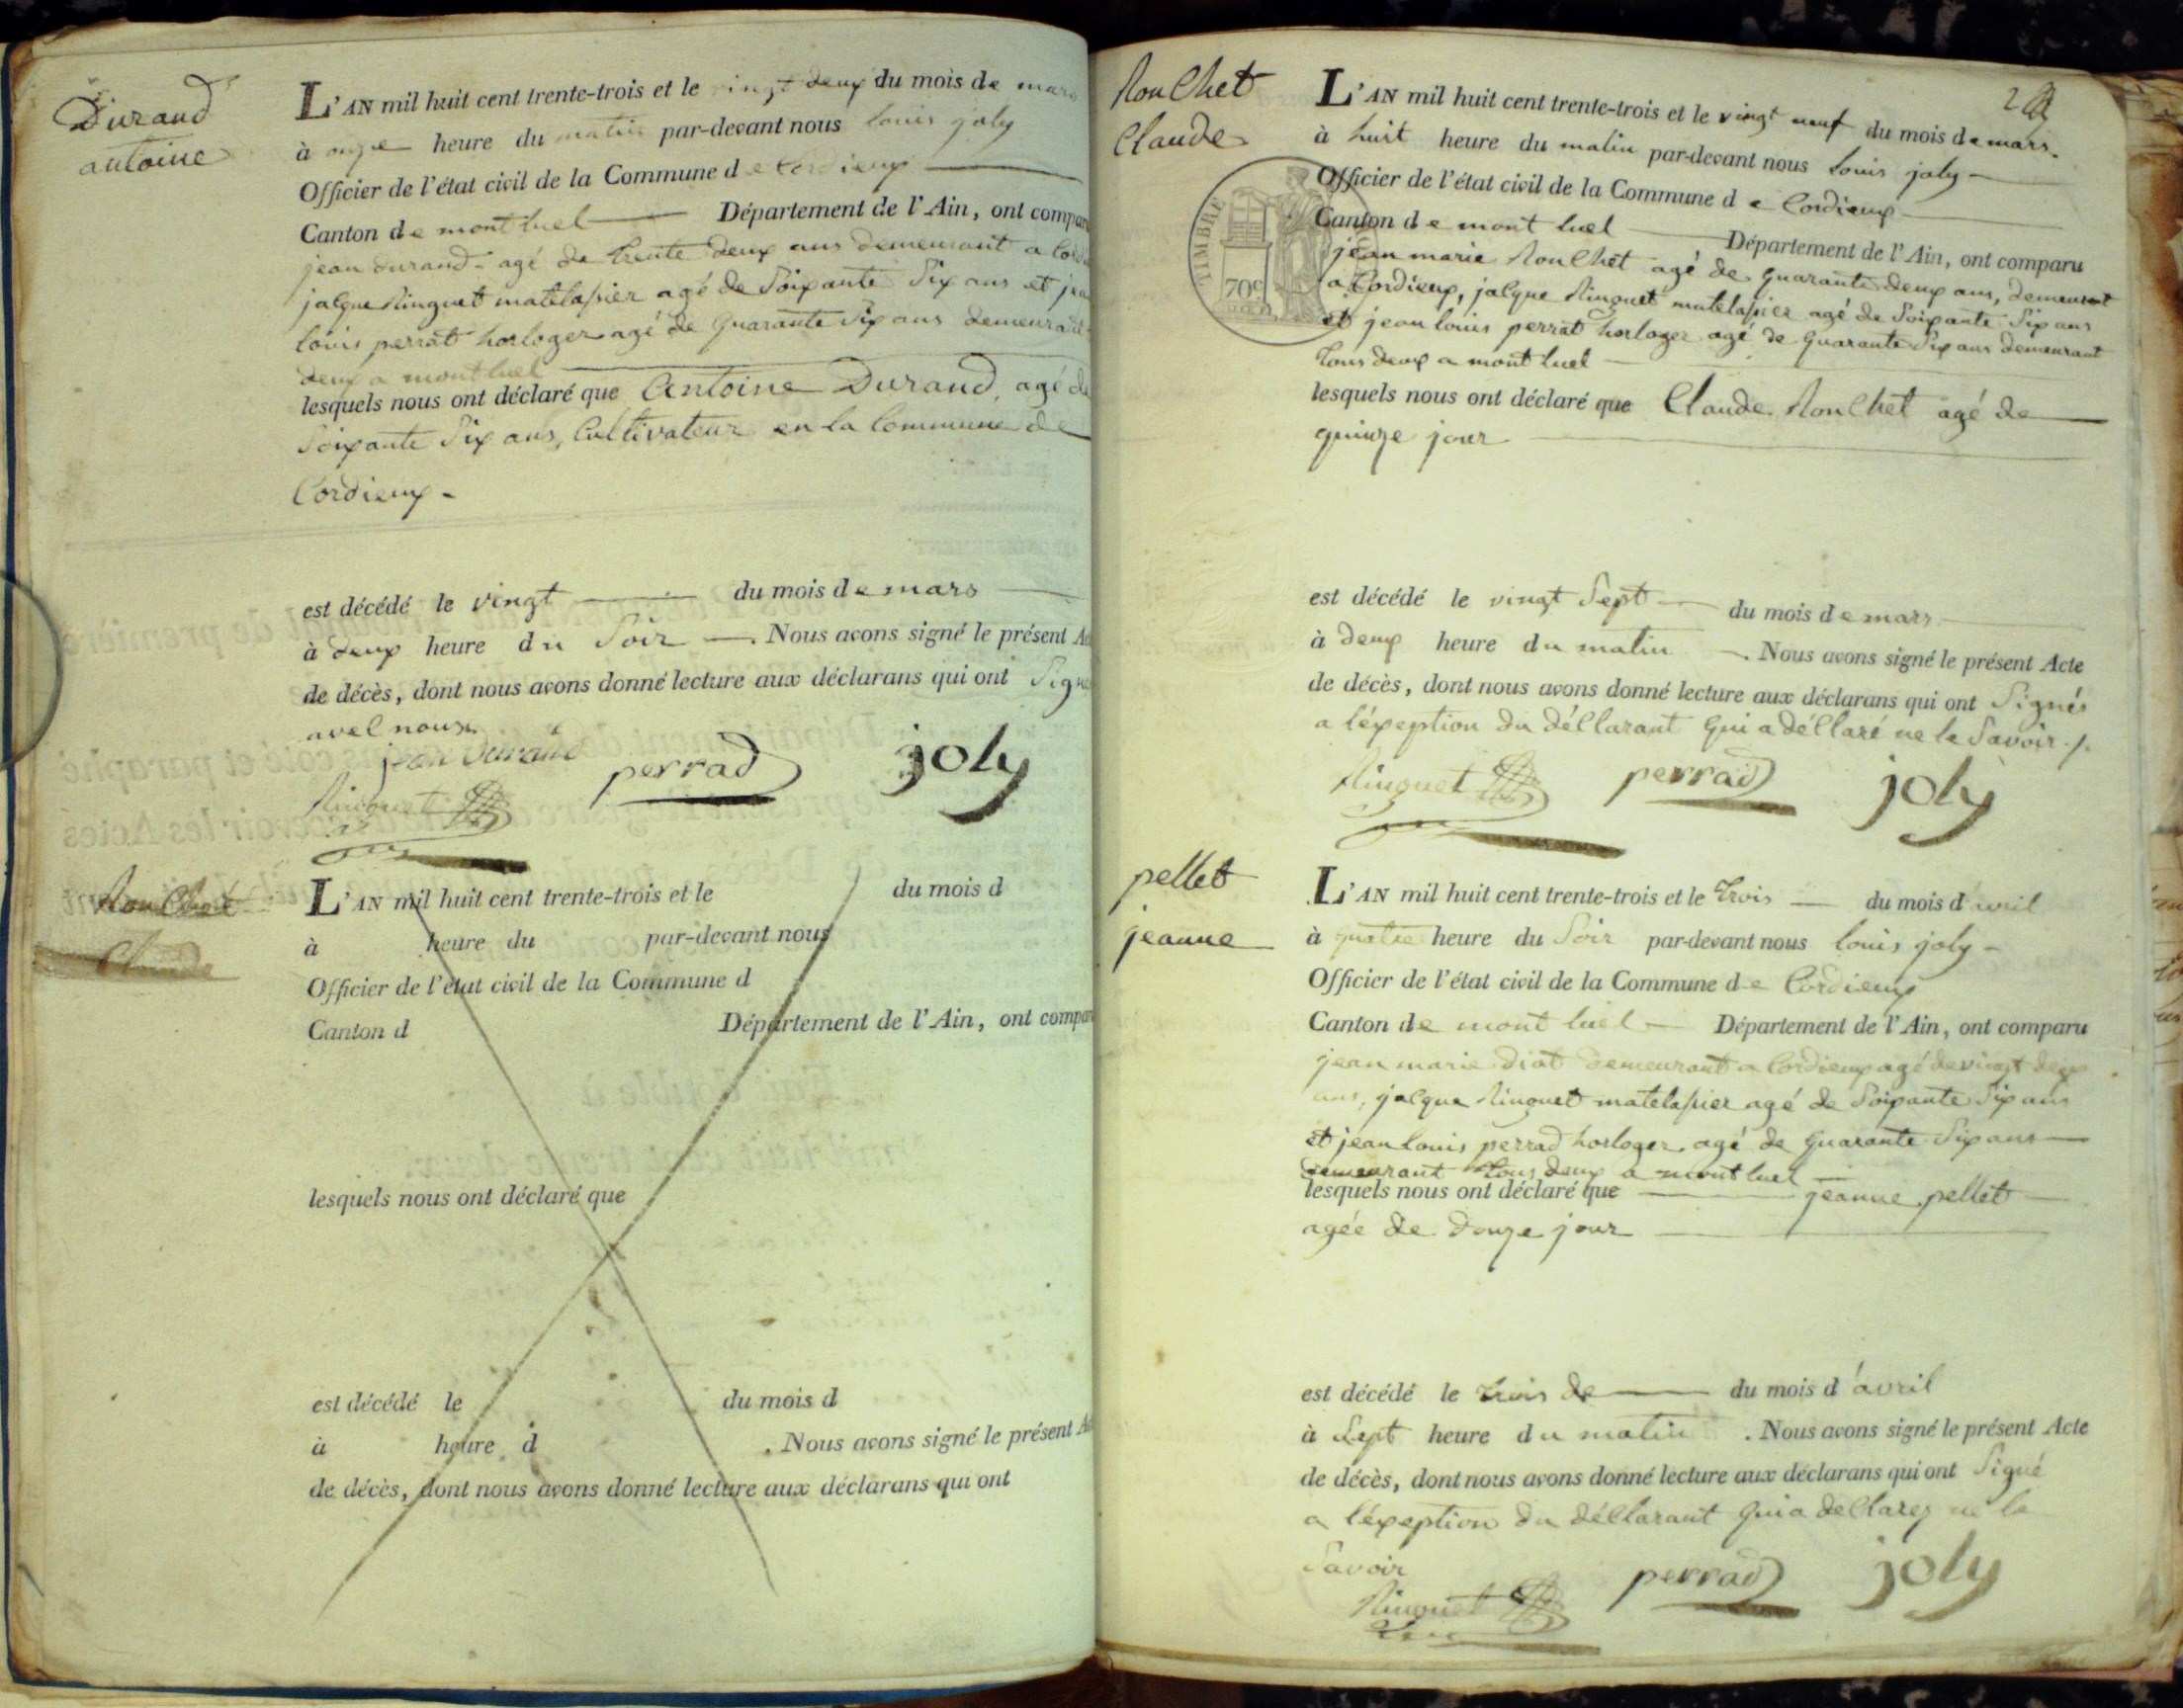 Durand
antoine
L'AN mil huit cent trente-trois et le vingt deux du mois de mars
à onze heure du matin par-devant nous louis joly
Officier de l'état civil de la Commune de Cordieux
Canton de mont luel Département de l'Ain, ont compar
jean durand agé de trente deux ans demeurant a Cord
jalque Ringuet matelassier agé de Soixante Six ans et jean
louis perrat horloger agé de quarante Six ans demeurant
deux a mont luel
lesquels nous ont déclaré que Antoine Durand, agé de
Soixante Six ans, Cultivateur en la Commune de
Cordieux -
est décédé le vingt du mois de mars
à deux heure du Soir . Nous avons signé le présent Ac
de décès, dont nous avons donné lecture aux déclarans qui ont Signé
avel nous
jean durand
Ringuet perrad joly
Rouchet
Claude
L'AN mil huit cent trente-trois et le du mois d
à heure du par-devant nous
Officier de l'état civil de la Commune d
Canton d Département de l'Ain, ont compar
lesquels nous ont déclaré que
est décédé le du mois d
à heure d . Nous avons signé le présent Ac
de décès, dont nous avons donné lecture aux déclarans qui ont
Rouchet
Claude
TIMBRE
70c
L'AN mil huit cent trente-trois et le vingt neuf du mois de mars.
à huit heure du matin par-devant nous louis joly -
Officier de l'état civil de la Commune de Cordieux
Canton de mont luel Département de l'Ain, ont comparu
jean marie Rouchet agé de quarante deux ans, demeurant
a Cordieux, jalque Ringuet matelassier agé de Soixante Six ans
et jean louis perrat horloger agé de quarante Six ans demeurant
tous deux a mont luel
lesquels nous ont déclaré que Claude Rouchet agé de
quinze jour
est décédé le vingt Sept du mois de mars
à deux heure du matin . Nous avons signé le présent Acte
de décès, dont nous avons donné lecture aux déclarans qui ont Signés
a léxeption du déllarant qui a déllaré ne le Savoir ./.
Ringuet perrad joly
pellet
jeanne
L'AN mil huit cent trente-trois et le trois du mois d'avril
à quatre heure du Soir par-devant nous louis joly -
Officier de l'état civil de la Commune de Cordieux
Canton de mont luel Département de l'Ain, ont comparu
jean marie diat demeurant a Cordieux agé de vingt deux
ans, jalque Ringuet matelassier agé de Soixante Six ans
et jean louis perrad horloger agé de quarante Six ans
demeurant tous deux a mont luel
lesquels nous ont déclaré que jeanne pellet
agée de douze jour
est décédé le trois de du mois d'avril
à Sept heure du matin . Nous avons signé le présent Acte
de décès, dont nous avons donné lecture aux déclarans qui ont Signé
a léxeption du déllarant qui a dellarez ne le
Savoir
Ringuet perrad joly